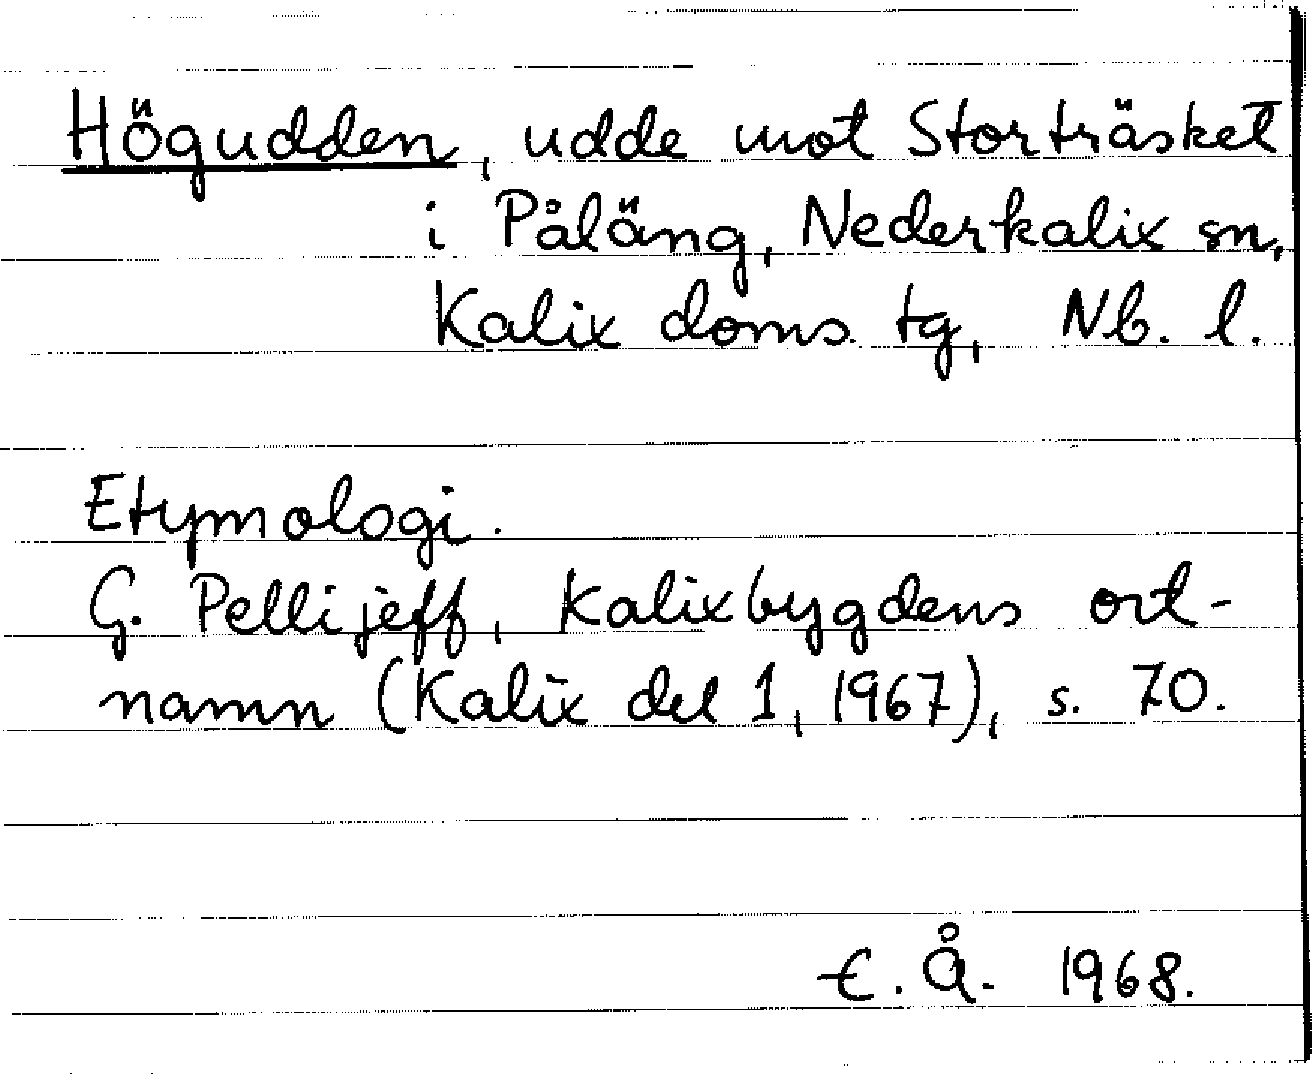 Högudden, udde mot Storträsket
i Påläng, Nederkalix sn,
Kalix doms. tg, Nb. l.
Etymologi.
G. Pellijeff, Kalixbygdens ort-
namn (Kalix del 1, 1967), s. 70.
E. Å. 1968.